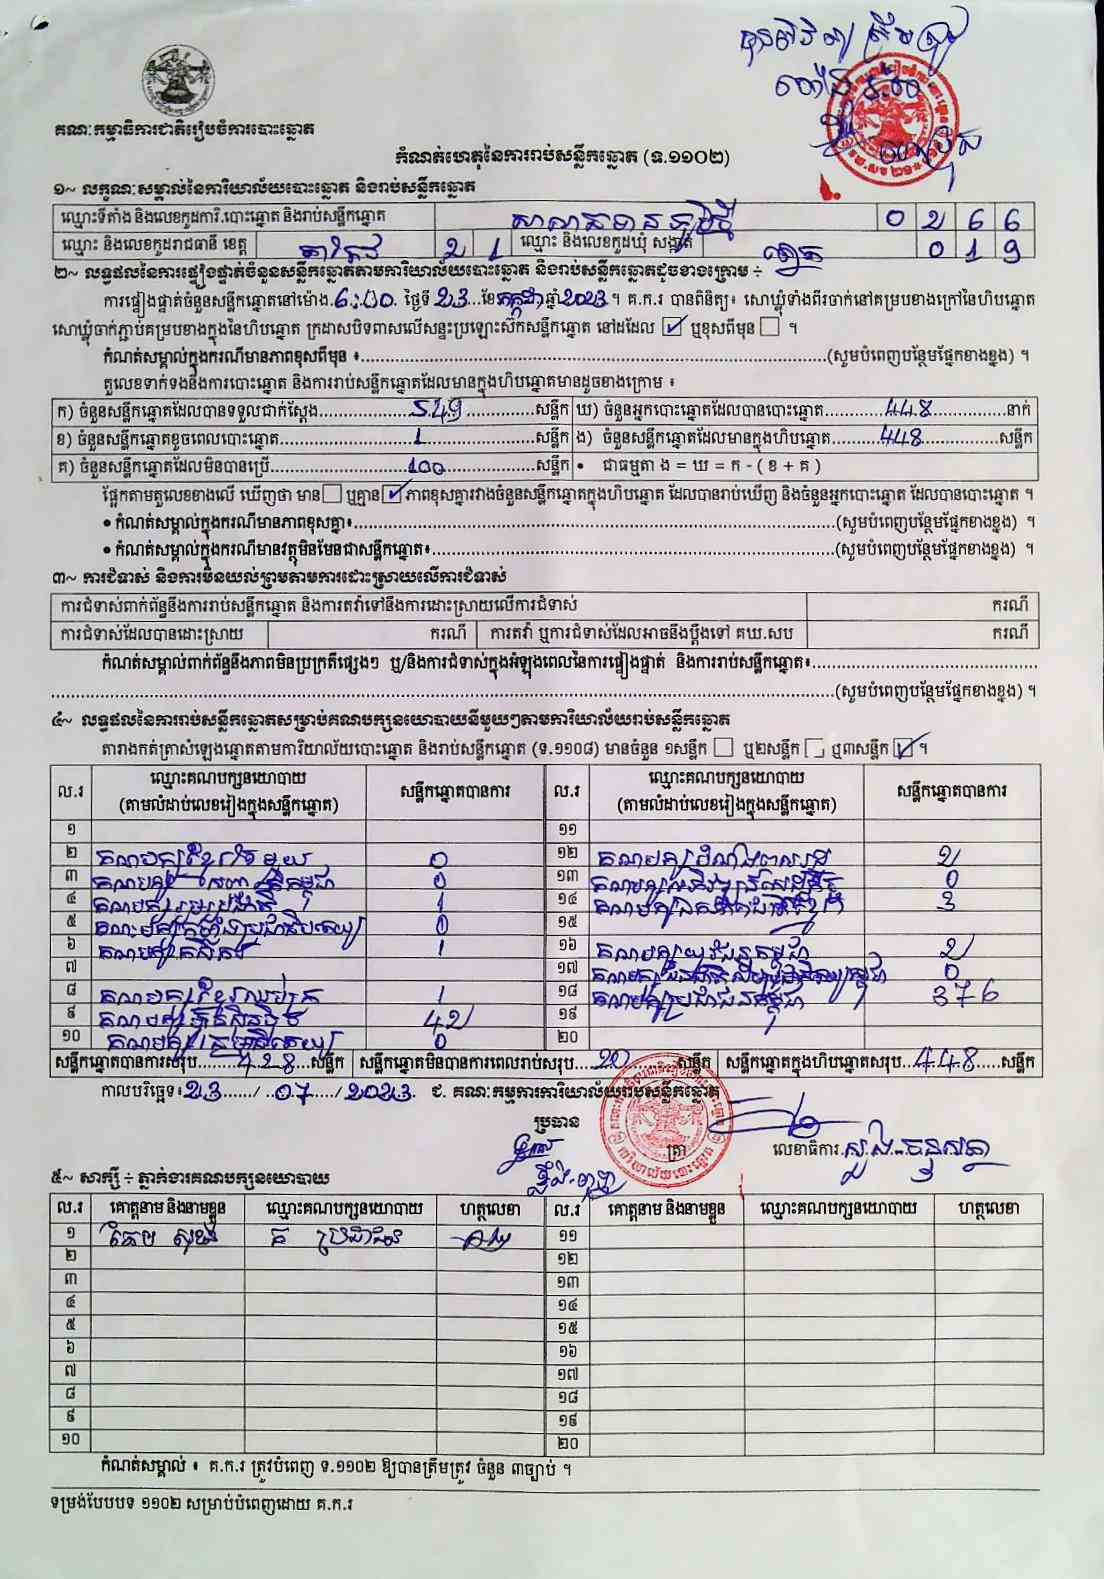 គណៈកម្មាធិការជាតិរៀបចំការបោះឆ្នោត
កំណត់ហេតុនៃការរាប់សន្លឹកឆ្នោត (ទ.១១០២)
១~ លក្ខណៈសម្គាល់នៃការិយាល័យបោះឆ្នោត និងរាប់សន្លឹកឆ្នោត
ឈ្មោះទីតាំង និងលេខកូដការិ.បោះឆ្នោត និងរាប់សន្លឹកឆ្នោត 0 2 6 6
ឈ្មោះ និងលេខកូដរាជធានី ខេត្ត តាកែវ 2 1 ឈ្មោះ និងលេខកូដឃុំ សង្កាត់ 0 1 9
២~ លទ្ធផលនៃការផ្ទៀងផ្ទាត់ចំនួនសន្លឹកឆ្នោតតាមការិយាល័យបោះឆ្នោត និងរាប់សន្លឹកឆ្នោតដូចខាងក្រោម ÷
ការផ្ទៀងផ្ទាត់ចំនួនសន្លឹកឆ្នោតនៅម៉ោង.6:00. ថ្ងៃទី 23 ខែកក្កដា ឆ្នាំ 2023 ។ គ.ក.រ បានពិនិត្យ៖ សោឃ្លុំទាំងពីរចាក់នៅគម្របខាងក្រៅនៃហិបឆ្នោត
សោឃ្លុំចាក់ភ្ជាប់គម្របខាងក្នុងនៃហិបឆ្នោត ក្រដាសបិទពាសលើសន្ទះប្រឡោះស៊កសន្លឹកឆ្នោត នៅដដែល ☑ ឬខុសពីមុន ☐ ។
កំណត់សម្គាល់ក្នុងករណីមានភាពខុសពីមុន ៖ (សូមបំពេញបន្ថែមផ្នែកខាងខ្នង) ។
តួលេខទាក់ទងនឹងការបោះឆ្នោត និងការរាប់សន្លឹកឆ្នោតដែលមានក្នុងហិបឆ្នោតមានដូចខាងក្រោម ៖
ក) ចំនួនសន្លឹកឆ្នោតដែលបានទទួលជាក់ស្តែង 549 សន្លឹក ឃ) ចំនួនអ្នកបោះឆ្នោតដែលបានបោះឆ្នោត 448 នាក់
ខ) ចំនួនសន្លឹកឆ្នោតខូចពេលបោះឆ្នោត 1 សន្លឹក ង) ចំនួនសន្លឹកឆ្នោតដែលមានក្នុងហិបឆ្នោត 448 សន្លឹក
គ) ចំនួនសន្លឹកឆ្នោតដែលមិនបានប្រើ 100 សន្លឹក • ជាធម្មតា ង = ឃ = ក - ( ខ + គ )
ផ្អែកតាមតួលេខខាងលើ ឃើញថា មាន ☐ ឬគ្មាន ☑ ភាពខុសគ្នារវាងចំនួនសន្លឹកឆ្នោតក្នុងហិបឆ្នោត ដែលបានរាប់ឃើញ និងចំនួនអ្នកបោះឆ្នោត ដែលបានបោះឆ្នោត ។
• កំណត់សម្គាល់ក្នុងករណីមានភាពខុសគ្នា៖ (សូមបំពេញបន្ថែមផ្នែកខាងខ្នង) ។
• កំណត់សម្គាល់ក្នុងករណីមានវត្ថុមិនមែនជាសន្លឹកឆ្នោត៖ (សូមបំពេញបន្ថែមផ្នែកខាងខ្នង) ។
៣~ ការជំទាស់ និងការមិនយល់ព្រមតាមការដោះស្រាយលើការជំទាស់
ការជំទាស់ពាក់ព័ន្ធនឹងការរាប់សន្លឹកឆ្នោត និងការតវ៉ាទៅនឹងការដោះស្រាយលើការជំទាស់ ករណី
ការជំទាស់ដែលបានដោះស្រាយ ករណី ការតវ៉ា ឬការជំទាស់ដែលអាចនឹងប្តឹងទៅ គឃ.សប ករណី
កំណត់សម្គាល់ពាក់ព័ន្ធនឹងភាពមិនប្រក្រតីផ្សេងៗ ឬ/និងការជំទាស់ក្នុងអំឡុងពេលនៃការផ្ទៀងផ្ទាត់ និងការរាប់សន្លឹកឆ្នោត៖
(សូមបំពេញបន្ថែមផ្នែកខាងខ្នង) ។
៤~ លទ្ធផលនៃការរាប់សន្លឹកឆ្នោតសម្រាប់គណបក្សនយោបាយនីមួយៗតាមការិយាល័យរាប់សន្លឹកឆ្នោត
តារាងកត់ត្រាសំឡេងឆ្នោតតាមការិយាល័យបោះឆ្នោត និងរាប់សន្លឹកឆ្នោត (ទ.១១០៨) មានចំនួន ១សន្លឹក ☐ ឬ២សន្លឹក ☐ ឬ៣សន្លឹក ☑ ។
ល.រ ឈ្មោះគណបក្សនយោបាយ (តាមលំដាប់លេខរៀងក្នុងសន្លឹកឆ្នោត) សន្លឹកឆ្នោតបានការ ល.រ ឈ្មោះគណបក្សនយោបាយ (តាមលំដាប់លេខរៀងក្នុងសន្លឹកឆ្នោត) សន្លឹកឆ្នោតបានការ
១ ១១
២ គណបក្សខ្មែរតែមួយ 0 ១២ គណបក្ស 2
៣ គណបក្ស 0 ១៣ គណបក្ស 0
៤ គណបក្ស 1 ១៤ គណបក្ស 3
៥ គណបក្ស 0 ១៥
៦ គណបក្សកសិករ 1 ១៦ គណបក្សយុវជនកម្ពុជា 2
៧ ១៧ គណបក្ស 0
៨ គណបក្សខ្មែរឈប់ក្រ 1 ១៨ គណបក្សប្រជាជនកម្ពុជា 376
៩ គណបក្សហ៊្វុនស៊ិនប៉ិច 42 ១៩
១០ គណបក្ស 0 ២០
សន្លឹកឆ្នោតបានការសរុប 428 សន្លឹក សន្លឹកឆ្នោតមិនបានការពេលរាប់សរុប 20 សន្លឹក សន្លឹកឆ្នោតក្នុងហិបឆ្នោតសរុប 448 សន្លឹក
កាលបរិច្ឆេទ៖ 23 / 07 / 2023. ជ. គណៈកម្មការការិយាល័យរាប់សន្លឹកឆ្នោត
ប្រធាន ត្រា លេខាធិការ
៥~ សាក្សី ÷ ភ្នាក់ងារគណបក្សនយោបាយ
ល.រ គោត្តនាម និងនាមខ្លួន ឈ្មោះគណបក្សនយោបាយ ហត្ថលេខា ល.រ គោត្តនាម និងនាមខ្លួន ឈ្មោះគណបក្សនយោបាយ ហត្ថលេខា
១ គ ប្រជាជន ១១
២ ១២
៣ ១៣
៤ ១៤
៥ ១៥
៦ ១៦
៧ ១៧
៨ ១៨
៩ ១៩
១០ ២០
កំណត់សម្គាល់ ៖ គ.ក.រ ត្រូវបំពេញ ទ.១១០២ ឱ្យបានត្រឹមត្រូវ ចំនួន ៣ច្បាប់ ។
ទម្រង់បែបបទ ១១០២ សម្រាប់បំពេញដោយ គ.ក.រ